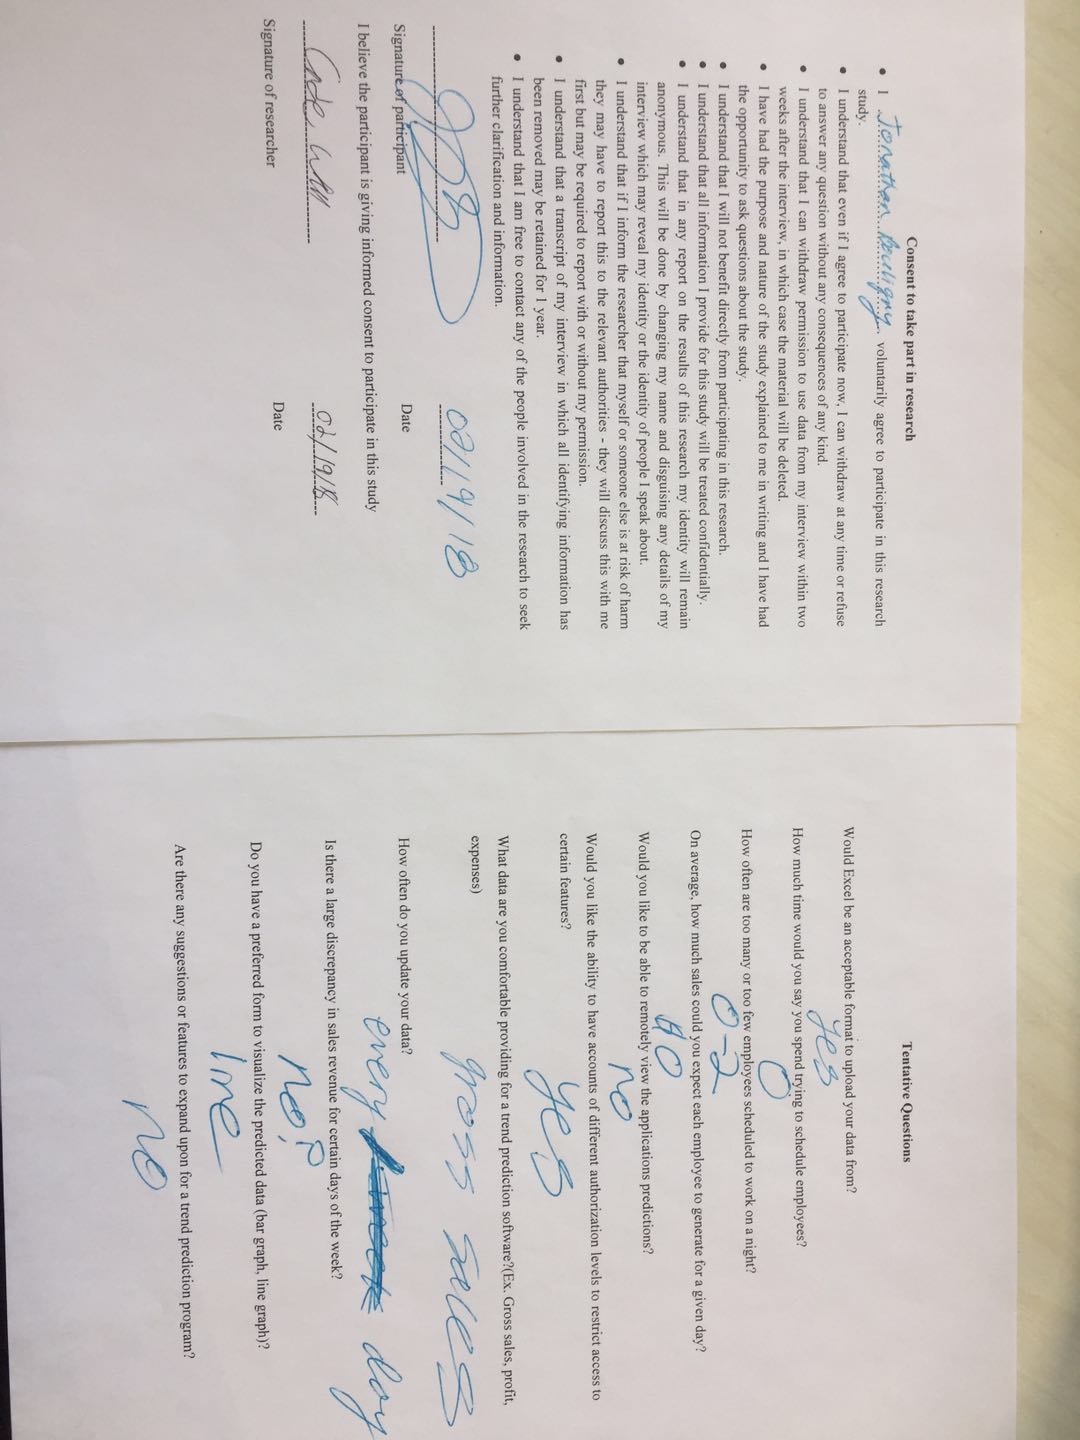 Consent to take part in research
• I Jonathan Bouligny voluntarily agree to participate in this research
study.
• I understand that even if I agree to participate now, I can withdraw at any time or refuse
to answer any question without any consequences of any kind.
• I understand that I can withdraw permission to use data from my interview within two
weeks after the interview, in which case the material will be deleted.
• I have had the purpose and nature of the study explained to me in writing and I have had
the opportunity to ask questions about the study.
• I understand that I will not benefit directly from participating in this research.
• I understand that all information I provide for this study will be treated confidentially.
• I understand that in any report on the results of this research my identity will remain
anonymous. This will be done by changing my name and disguising any details of my
interview which may reveal my identity or the identity of people I speak about.
• I understand that if I inform the researcher that myself or someone else is at risk of harm
they may have to report this to the relevant authorities - they will discuss this with me
first but may be required to report with or without my permission.
• I understand that a transcript of my interview in which all identifying information has
been removed may be retained for 1 year.
• I understand that I am free to contact any of the people involved in the research to seek
further clarification and information.
02/19/18
Signature of participant Date
I believe the participant is giving informed consent to participate in this study
02/19/18
Signature of researcher Date
Tentative Questions
Would Excel be an acceptable format to upload your data from?
yes
How much time would you say you spend trying to schedule employees?
0
How often are too many or too few employees scheduled to work on a night?
0-2
On average, how much sales could you expect each employee to generate for a given day?
$0
Would you like to be able to remotely view the applications predictions?
no
Would you like the ability to have accounts of different authorization levels to restrict access to
certain features?
yes
What data are you comfortable providing for a trend prediction software?(Ex. Gross sales, profit,
expenses)
gross sales
How often do you update your data?
every day
Is there a large discrepancy in sales revenue for certain days of the week?
no?
Do you have a preferred form to visualize the predicted data (bar graph, line graph)?
line
Are there any suggestions or features to expand upon for a trend prediction program?
no